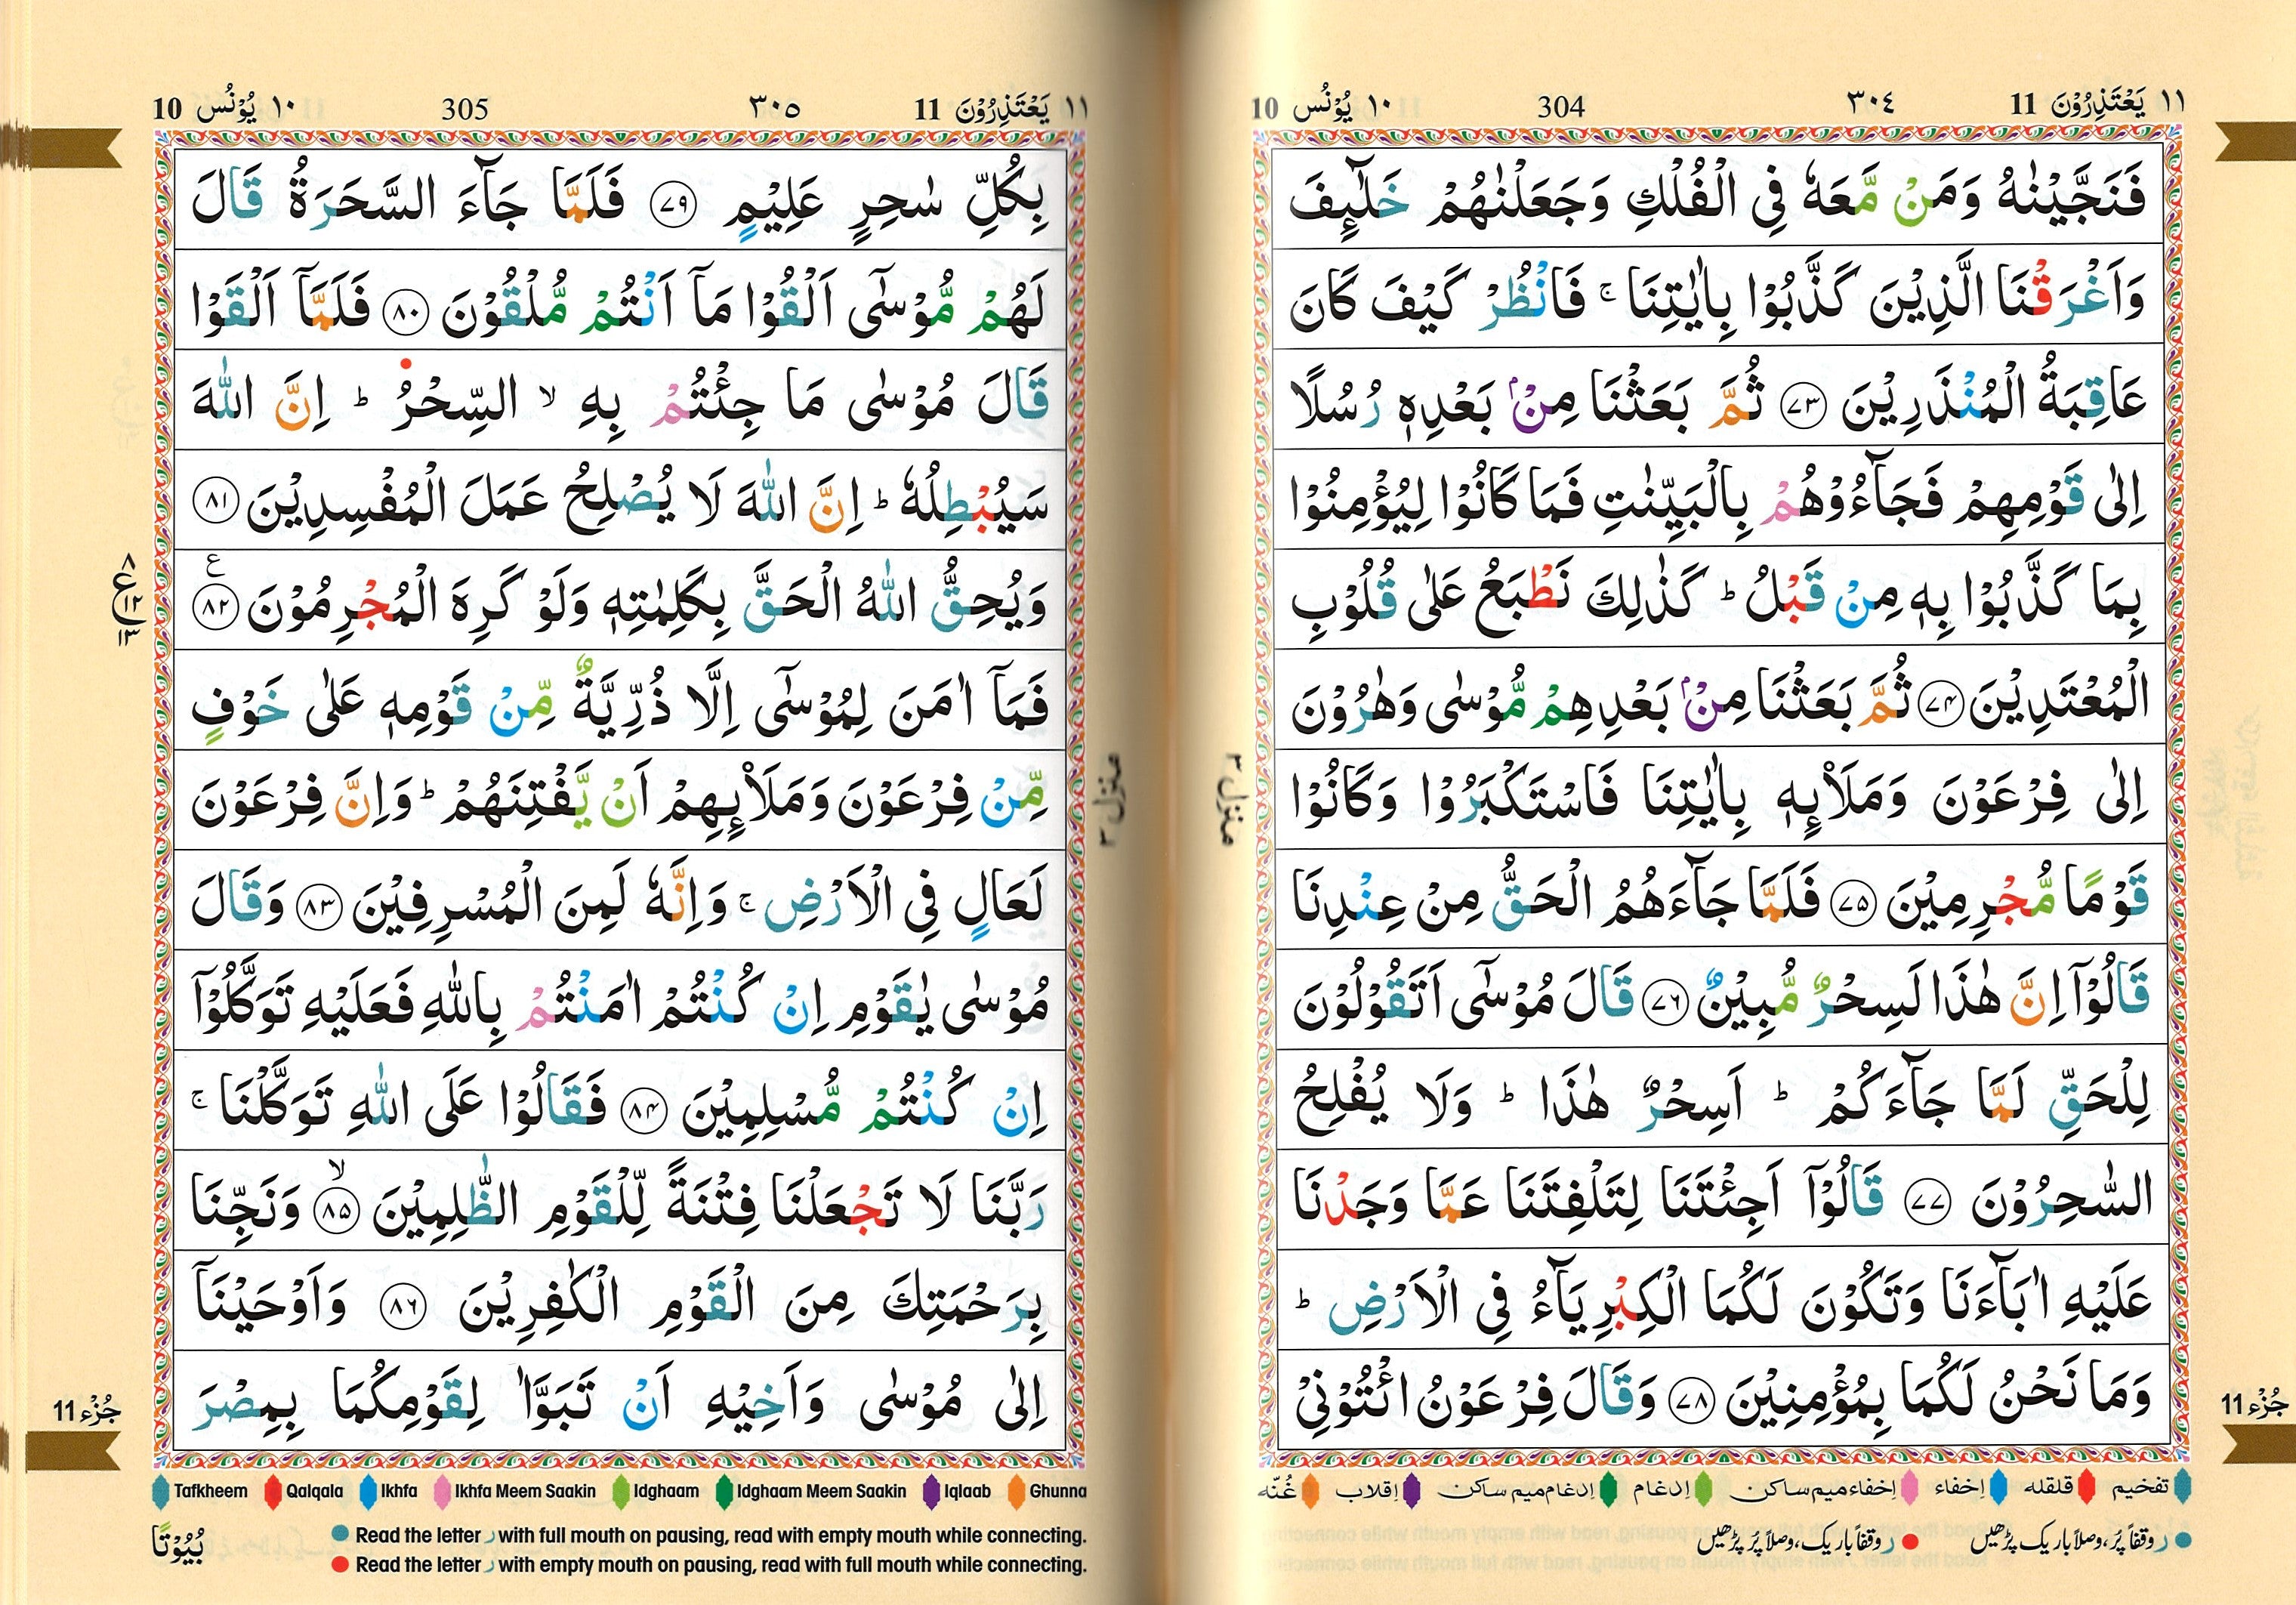 ١١ يَعْتَذِرُوْنَ 11 ٣٠٤ 304 ١٠ يُوْنُس 10
فَنَجَّيْنٰهُ وَمَنْ مَّعَهٗ فِى الْفُلْكِ وَجَعَلْنٰهُمْ خَلٰٓئِفَ
وَاَغْرَقْنَا الَّذِيْنَ كَذَّبُوْا بِاٰيٰتِنَا ۚ فَانْظُرْ كَيْفَ كَانَ
عَاقِبَةُ الْمُنْذَرِيْنَ ﴿٧٣﴾ ثُمَّ بَعَثْنَا مِنْۢ بَعْدِهٖ رُسُلًا
اِلٰى قَوْمِهِمْ فَجَآءُوْهُمْ بِالْبَيِّنٰتِ فَمَا كَانُوْا لِيُؤْمِنُوْا
بِمَا كَذَّبُوْا بِهٖ مِنْ قَبْلُ ؕ كَذٰلِكَ نَطْبَعُ عَلٰى قُلُوْبِ
الْمُعْتَدِيْنَ ﴿٧٤﴾ ثُمَّ بَعَثْنَا مِنْۢ بَعْدِهِمْ مُّوْسٰى وَهٰرُوْنَ
اِلٰى فِرْعَوْنَ وَمَلَا۟ئِهٖ بِاٰيٰتِنَا فَاسْتَكْبَرُوْا وَكَانُوْا
قَوْمًا مُّجْرِمِيْنَ ﴿٧٥﴾ فَلَمَّا جَآءَهُمُ الْحَقُّ مِنْ عِنْدِنَا
قَالُوْٓا اِنَّ هٰذَا لَسِحْرٌ مُّبِيْنٌ ﴿٧٦﴾ قَالَ مُوْسٰٓى اَتَقُوْلُوْنَ
لِلْحَقِّ لَمَّا جَآءَكُمْ ؕ اَسِحْرٌ هٰذَا ؕ وَلَا يُفْلِحُ
السّٰحِرُوْنَ ﴿٧٧﴾ قَالُوْٓا اَجِئْتَنَا لِتَلْفِتَنَا عَمَّا وَجَدْنَا
عَلَيْهِ اٰبَآءَنَا وَتَكُوْنَ لَكُمَا الْكِبْرِيَآءُ فِى الْاَرْضِ ؕ
وَمَا نَحْنُ لَكُمَا بِمُؤْمِنِيْنَ ﴿٧٨﴾ وَقَالَ فِرْعَوْنُ ائْتُوْنِىْ
منزل ٣
جُزْء 11
تفخيم قلقله إخفاء إخفاء ميم ساكن إدغام إدغام ميم ساكن إقلاب غُنّه
ر وقفاً پُر، وصلاً باریک پڑھیں ر وقفاً باریک، وصلاً پُر پڑھیں
١١ يَعْتَذِرُوْنَ 11 ٣٠٥ 305 ١٠ يُوْنُس 10
بِكُلِّ سٰحِرٍ عَلِيْمٍ ﴿٧٩﴾ فَلَمَّا جَآءَ السَّحَرَةُ قَالَ
لَهُمْ مُّوْسٰٓى اَلْقُوْا مَآ اَنْتُمْ مُّلْقُوْنَ ﴿٨٠﴾ فَلَمَّآ اَلْقَوْا
قَالَ مُوْسٰى مَا جِئْتُمْ بِهِ ۙ السِّحْرُ ؕ اِنَّ اللّٰهَ
سَيُبْطِلُهٗ ؕ اِنَّ اللّٰهَ لَا يُصْلِحُ عَمَلَ الْمُفْسِدِيْنَ ﴿٨١﴾
وَيُحِقُّ اللّٰهُ الْحَقَّ بِكَلِمٰتِهٖ وَلَوْ كَرِهَ الْمُجْرِمُوْنَ ﴿٨٢﴾ ع
٨ ع ١٢ ١٣
فَمَآ اٰمَنَ لِمُوْسٰٓى اِلَّا ذُرِّيَّةٌ مِّنْ قَوْمِهٖ عَلٰى خَوْفٍ
مِّنْ فِرْعَوْنَ وَمَلَا۟ئِهِمْ اَنْ يَّفْتِنَهُمْ ؕ وَاِنَّ فِرْعَوْنَ
لَعَالٍ فِى الْاَرْضِ ۚ وَاِنَّهٗ لَمِنَ الْمُسْرِفِيْنَ ﴿٨٣﴾ وَقَالَ
مُوْسٰى يٰقَوْمِ اِنْ كُنْتُمْ اٰمَنْتُمْ بِاللّٰهِ فَعَلَيْهِ تَوَكَّلُوْٓا
اِنْ كُنْتُمْ مُّسْلِمِيْنَ ﴿٨٤﴾ فَقَالُوْا عَلَى اللّٰهِ تَوَكَّلْنَا ۚ
رَبَّنَا لَا تَجْعَلْنَا فِتْنَةً لِّلْقَوْمِ الظّٰلِمِيْنَ ۙ﴿٨٥﴾ وَنَجِّنَا
بِرَحْمَتِكَ مِنَ الْقَوْمِ الْكٰفِرِيْنَ ﴿٨٦﴾ وَاَوْحَيْنَآ
اِلٰى مُوْسٰى وَاَخِيْهِ اَنْ تَبَوَّاٰ لِقَوْمِكُمَا بِمِصْرَ
منزل ٣
جُزْء 11
Tafkheem Qalqala Ikhfa Ikhfa Meem Saakin Idghaam Idghaam Meem Saakin Iqlaab Ghunna
Read the letter ر with full mouth on pausing, read with empty mouth while connecting.
Read the letter ر with empty mouth on pausing, read with full mouth while connecting.
بُيُوْتًا